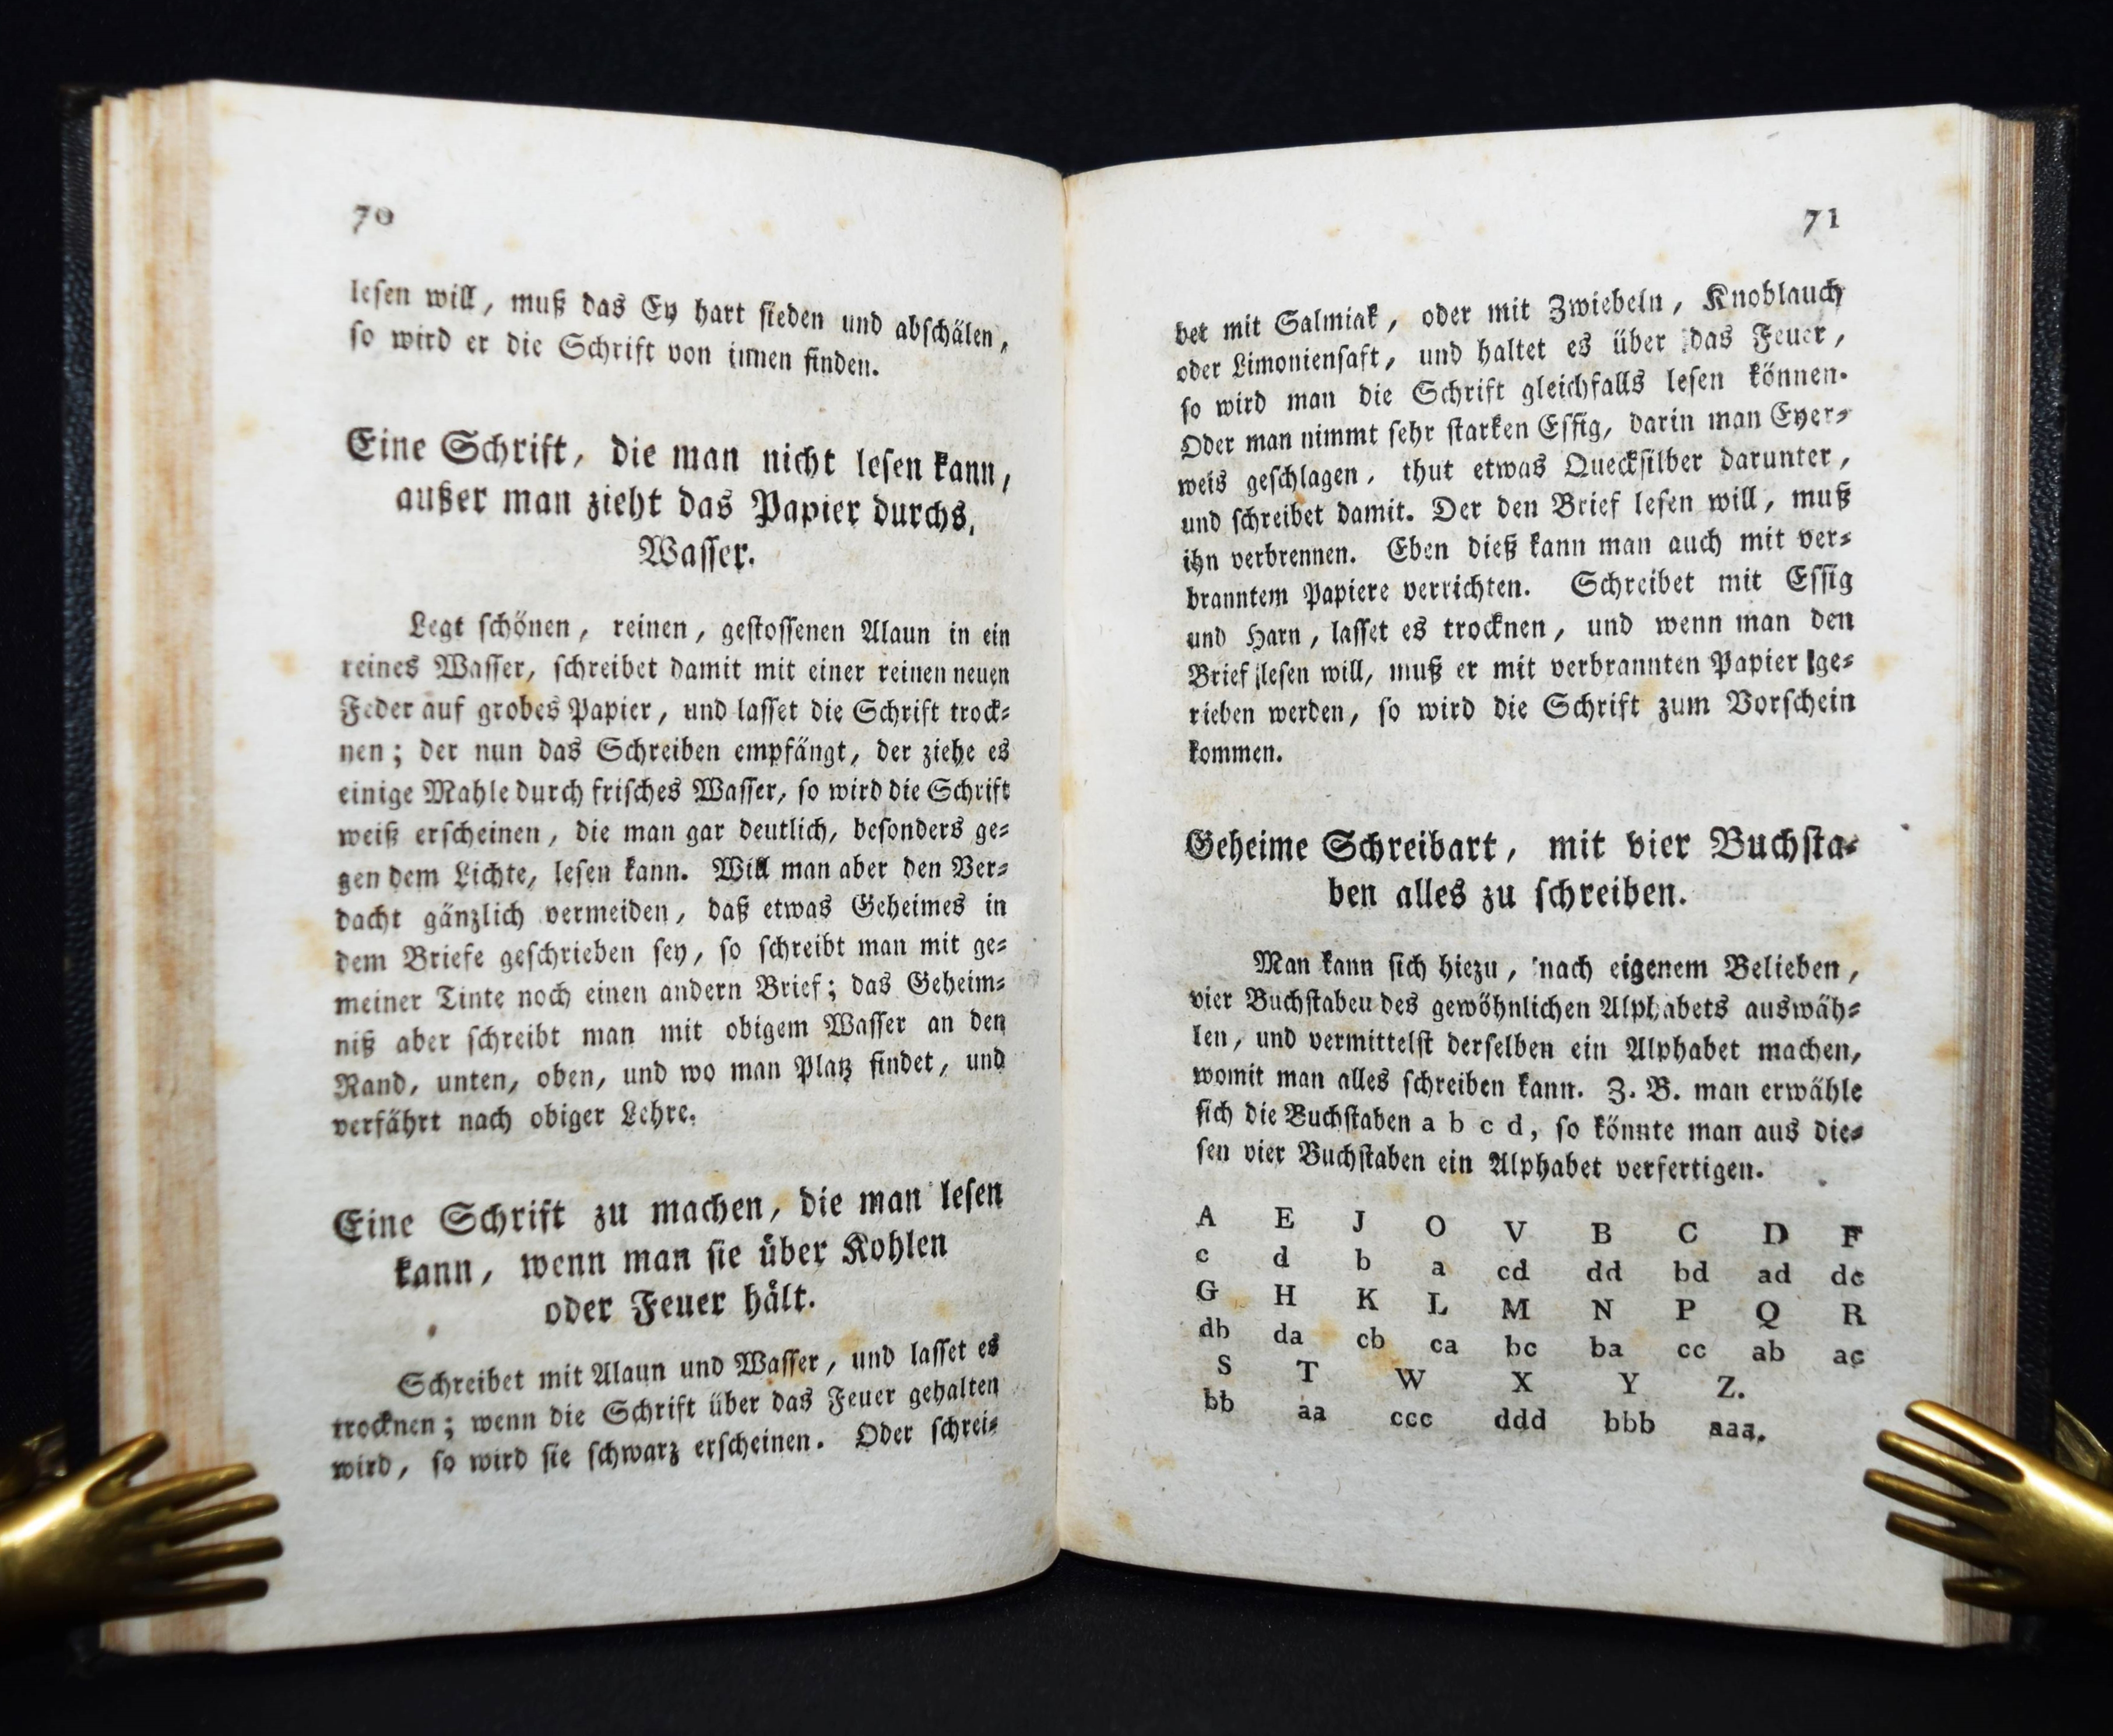 70
lesen will, muß das Ey hart sieden und abschälen,
so wird er die Schrift von innen finden.
Eine Schrift, die man nicht lesen kann,
außer man zieht das Papier durchs
Wasser.
Legt schönen, reinen, gestossenen Alaun in ein
reines Wasser, schreibet damit mit einer reinen neuen
Feder auf grobes Papier, und lasset die Schrift trock-
nen; der nun das Schreiben empfängt, der ziehe es
einige Mahle durch frisches Wasser, so wird die Schrift
weiß erscheinen, die man gar deutlich, besonders ge-
gen dem Lichte, lesen kann. Will man aber den Ver-
dacht gänzlich vermeiden, daß etwas Geheimes in
dem Briefe geschrieben sey, so schreibt man mit ge-
meiner Tinte noch einen andern Brief; das Geheim-
niß aber schreibt man mit obigem Wasser an den
Rand, unten, oben, und wo man Platz findet, und
verfährt nach obiger Lehre.
Eine Schrift zu machen, die man lesen
kann, wenn man sie über Kohlen
oder Feuer hält.
Schreibet mit Alaun und Wasser, und lasset es
trocknen; wenn die Schrift über das Feuer gehalten
wird, so wird sie schwarz erscheinen. Oder schrei-
71
bet mit Salmiak, oder mit Zwiebeln, Knoblauch
oder Limoniensaft, und haltet es über das Feuer,
so wird man die Schrift gleichfalls lesen können.
Oder man nimmt sehr starken Essig, darin man Eyer-
weis geschlagen, thut etwas Quecksilber darunter,
und schreibet damit. Der den Brief lesen will, muß
ihn verbrennen. Eben dieß kann man auch mit ver-
branntem Papiere verrichten. Schreibet mit Essig
und Harn, lasset es trocknen, und wenn man den
Brief lesen will, muß er mit verbrannten Papier ge-
rieben werden, so wird die Schrift zum Vorschein
kommen.
Geheime Schreibart, mit vier Buchsta-
ben alles zu schreiben.
Man kann sich hiezu, nach eigenem Belieben,
vier Buchstaben des gewöhnlichen Alphabets auswäh-
len, und vermittelst derselben ein Alphabet machen,
womit man alles schreiben kann. Z. B. man erwähle
sich die Buchstaben a b c d, so könnte man aus die-
sen vier Buchstaben ein Alphabet verfertigen.
A E J O V B C D F
c d b a cd dd bd ad dc
G H K L M N P Q R
db da cb ca bc ba cc ab ac
S T W X Y Z.
bb aa ccc ddd bbb aaa.